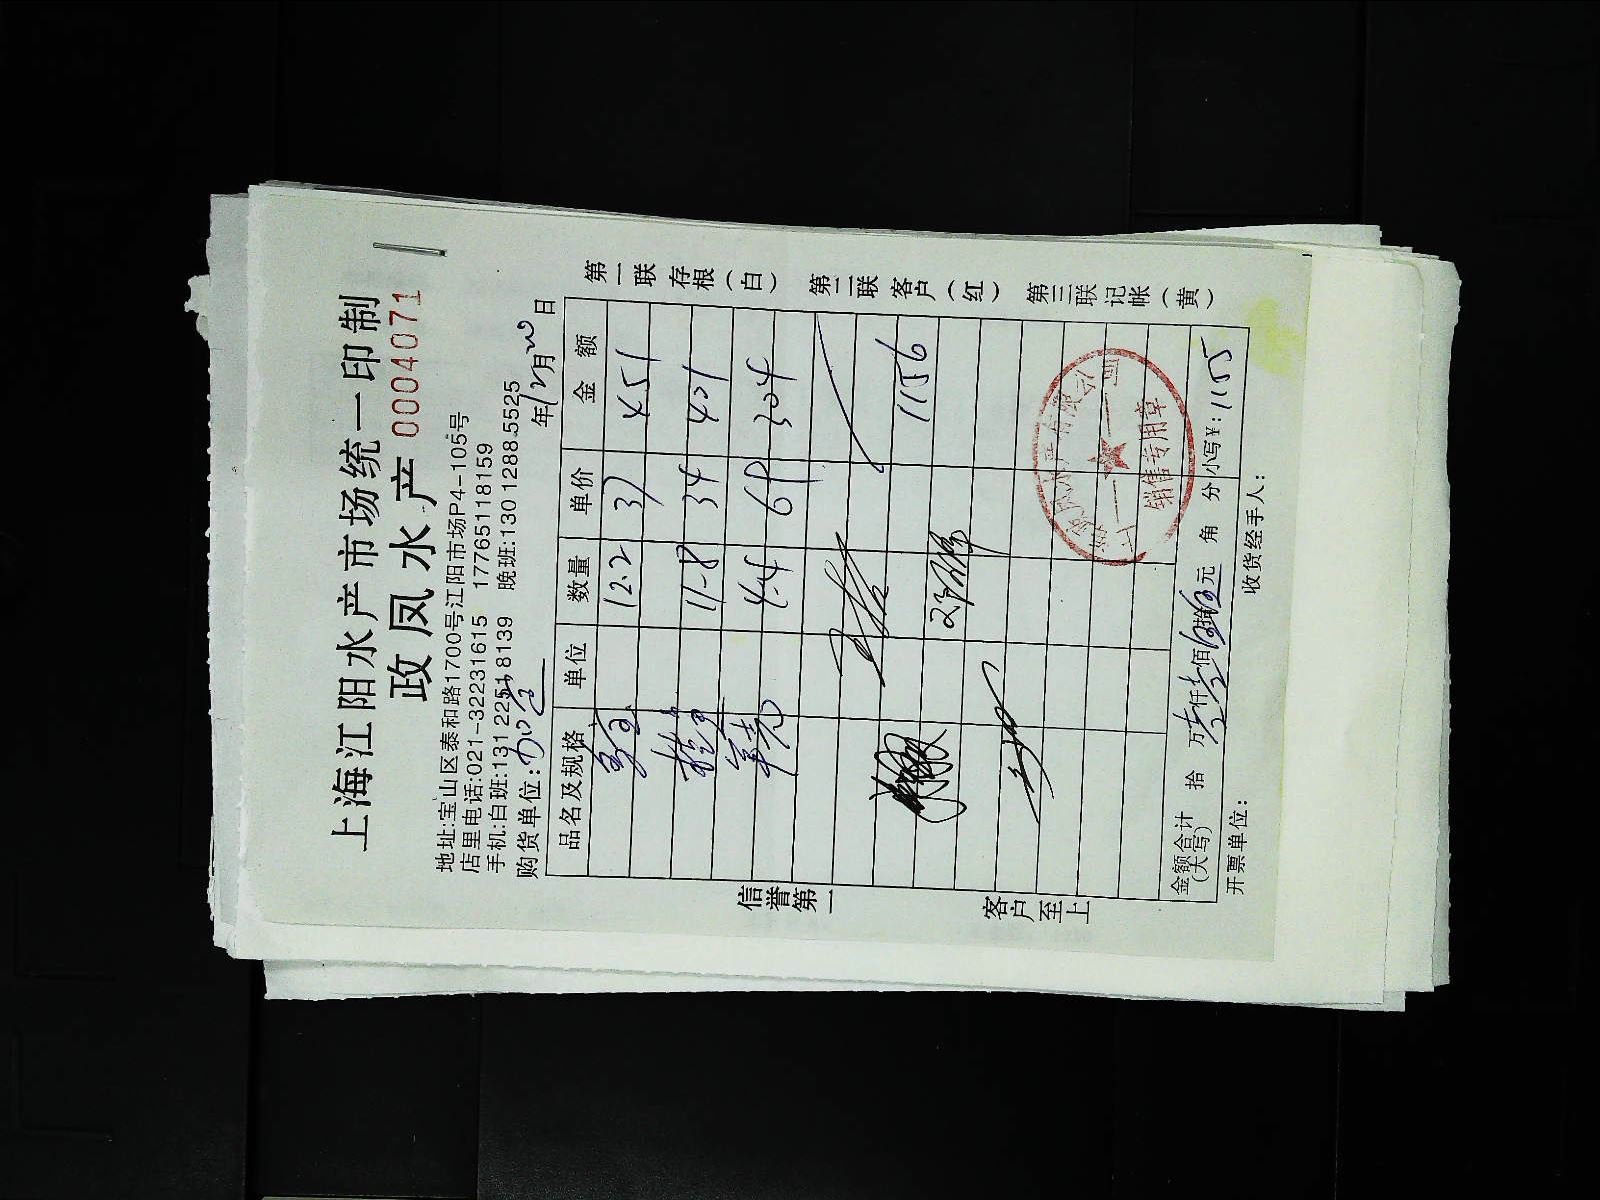 上海江阳水产市场统一印制
政凤水产 0004071
地址:宝山区泰和路1700号江阳市场P4-105号
店里电话:021-32231615 17765118159
手机:白班:13122518139 晚班:13012885525
购货单位: 年12月20日
品名及规格 单位 数量 单价 金额
12.2 37 451
11-8 34 401
4-4 69 304
1156
金额合计(大写) 拾 万 仟 佰 拾 元 角 分 小写¥:1155
开票单位: 收货经手人:
信誉第一
客户至上
第一联存根(白)
第二联客户(红)
第三联记帐(黄)
销售专用章